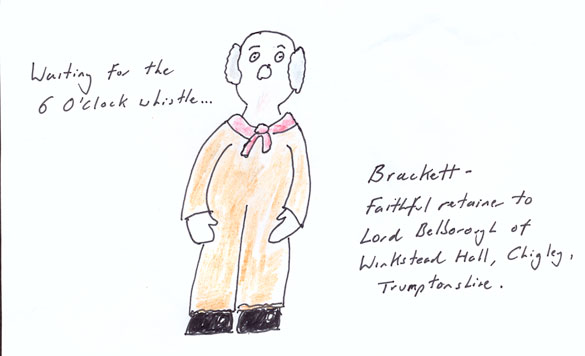 Waiting for the
6 O'Clock whistle...
Brackett -
Faithful retainer to
Lord Belborough of
Winkstead Hall, Chigley,
Trumptonshire.